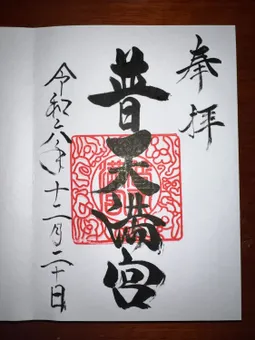 奉拝
普天満宮
令和六年十二月二十日